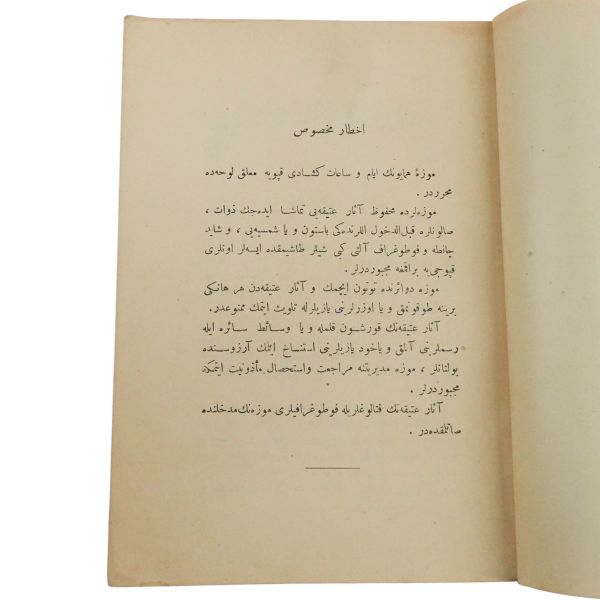 اخطار مخصوص
موزهٔ همایونك ایام و ساعات كشادی قپویه معلق لوحه‌ده
محرردر.
موزه‌لرده محفوظ آثار عتیقه‌یی تماشا ایده‌جك ذوات ،
صالونلره قبل‌الدخول اللرنده‌كی باستون و یا شمسیه‌یی ، و شاید
چانطه و فوطوغراف آلتی كبی شیلر طاشیمقده ایسه‌لر اونلری
قپوجی‌یه براقمغه مجبوردرلر .
موزه دوائرنده توتون ایچمك و آثار عتیقه‌دن هر هانكی
برینه طوقونمق و یا اوزرلرینی یازیلرله تلویث ایتمك ممنوعدر.
آثار عتیقه‌نك قورشون قلمله و یا وسائط سائره ایله
رسملرینی آلمق و یاخود یازیلرینی استنساخ ایتمك آرزوسنده
بولنانلر ، موزه مدیریتنه مراجعت واستحصال مأذونیت ایتمكه
مجبوردرلر .
آثار عتیقه‌نك قتالوغلریله فوطوغرافیلری موزه‌نك مدخلنده
صاتلمقده‌در .